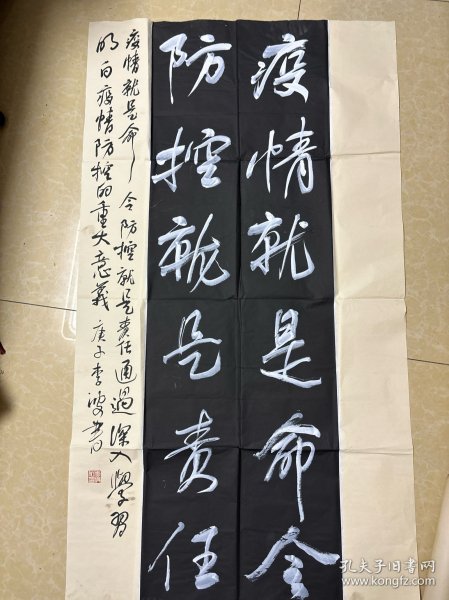 疫情就是命令
防控就是责任
疫情就是命令防控就是责任通過深入學習
明白疫情防控的重大意義 庚子李波書
孔夫子旧书网
www.kongfz.com